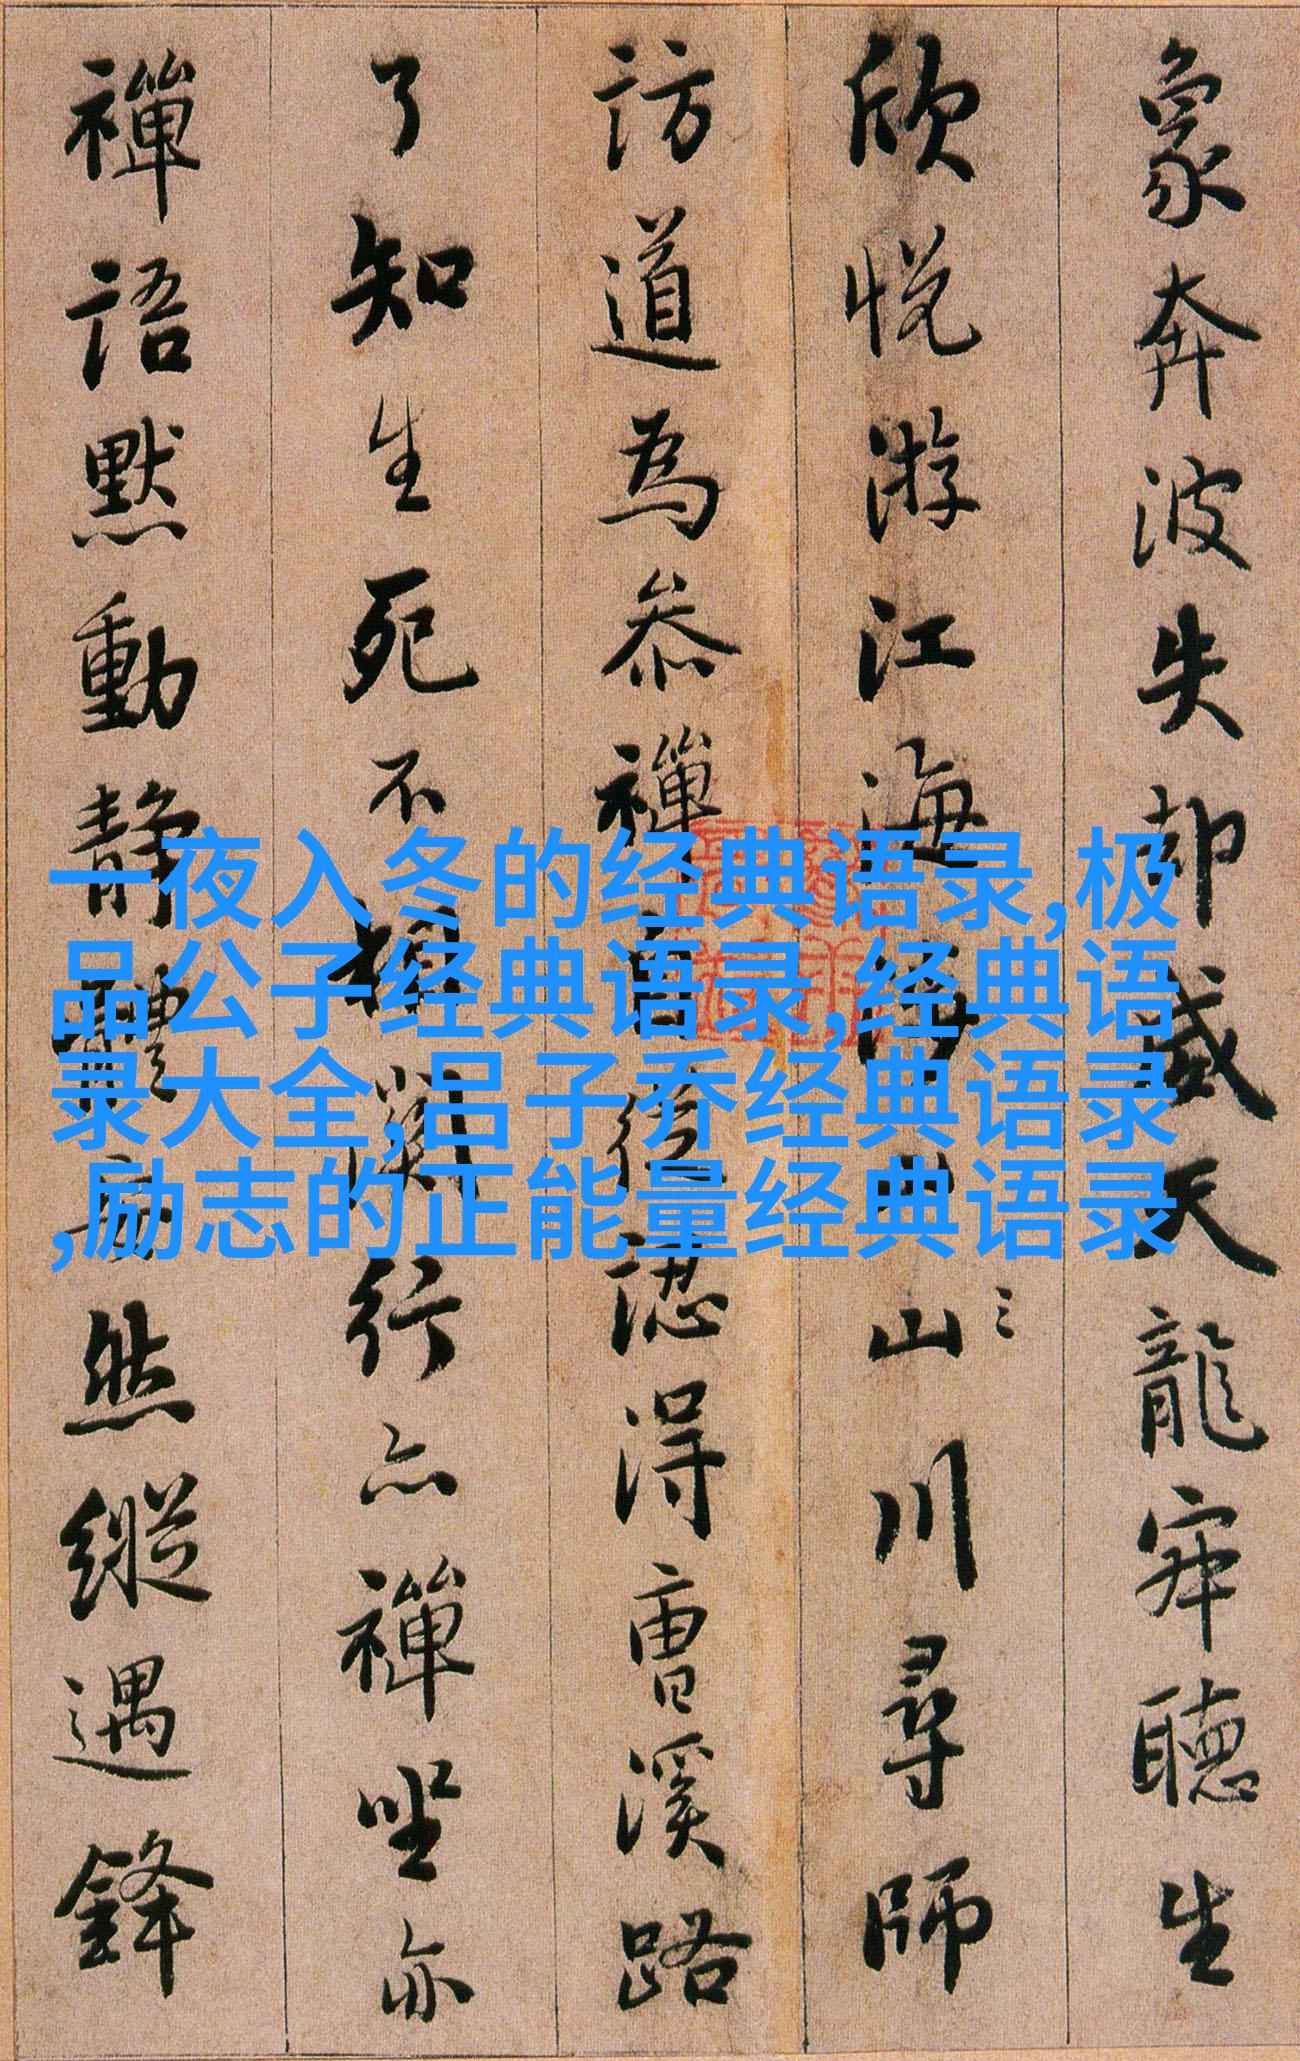 象奔波失却威天龍寂聽生
欣悅游江海山川尋師
訪道為叅禪自從認得曹溪路
了知生死不相關行亦禪坐亦
禪語默動靜體安然縱遇鋒
一夜入冬的经典语录,极
品公子经典语录,经典语
录大全,吕子乔经典语录
,励志的正能量经典语录